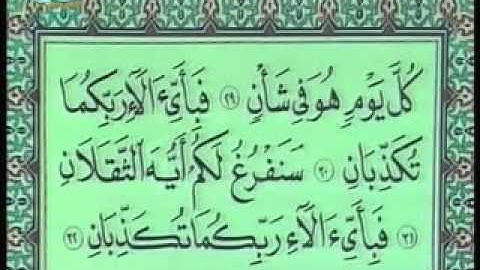 كُلَّ يَوْمٍ هُوَ فِى شَأْنٍ ٢٩ فَبِأَىِّ ءَالَآءِ رَبِّكُمَا
تُكَذِّبَانِ ٣٠ سَنَفْرُغُ لَكُمْ أَيُّهَ الثَّقَلَانِ
٣١ فَبِأَىِّ ءَالَآءِ رَبِّكُمَا تُكَذِّبَانِ ٣٢